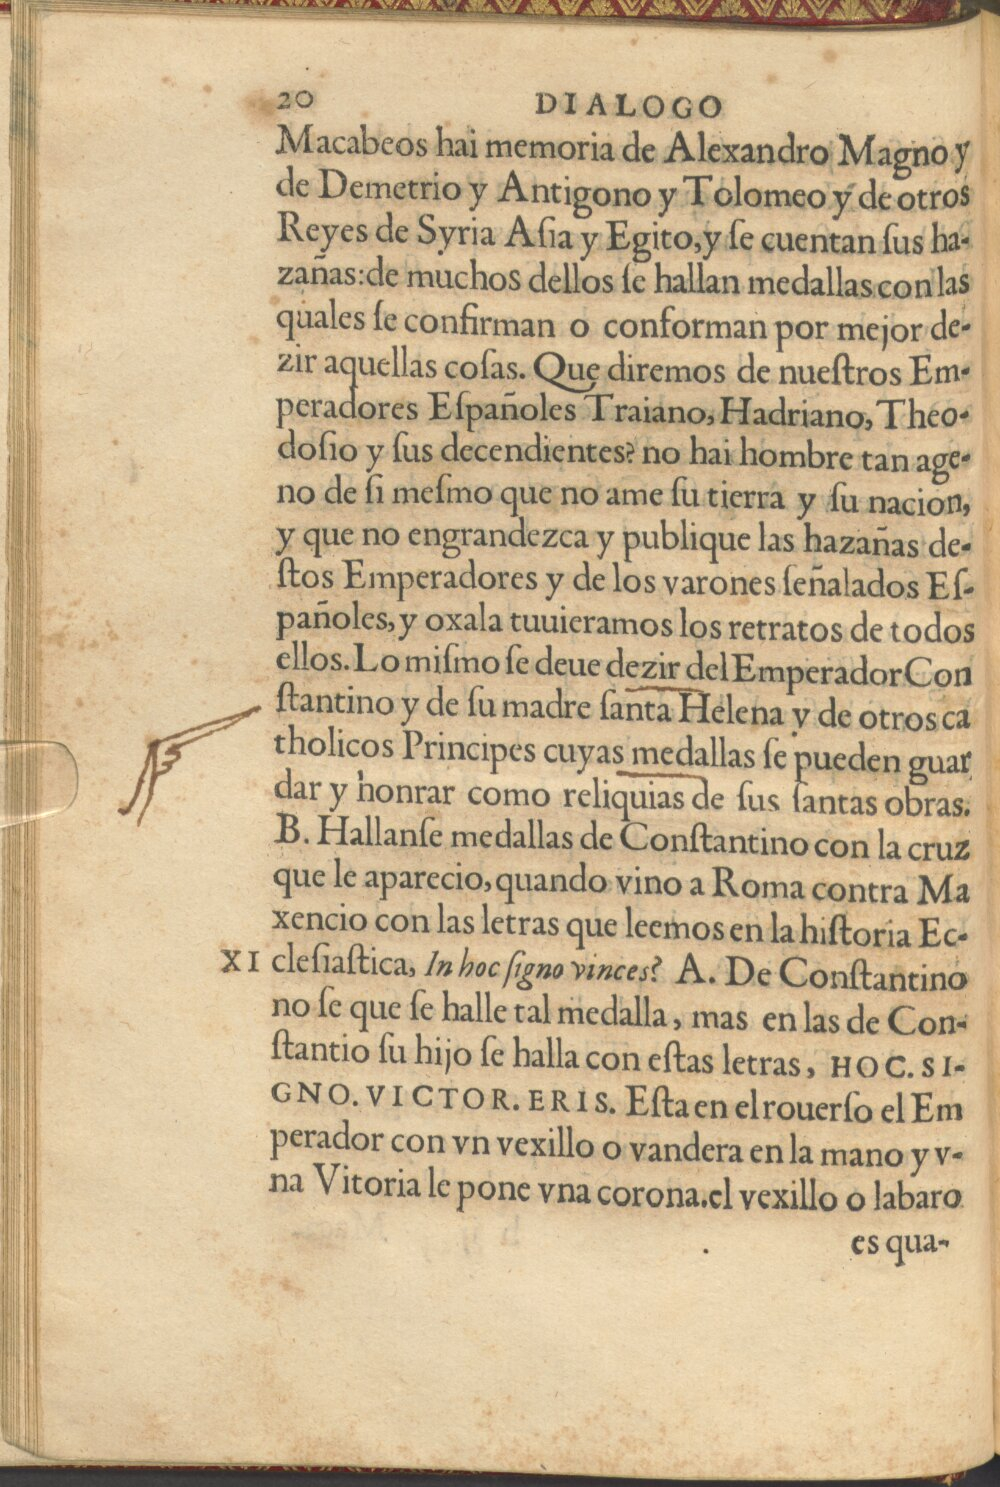 20 DIALOGO
Macabeos hai memoria de Alexandro Magno y
de Demetrio y Antigono y Tolomeo y de otros
Reyes de Syria Aſia y Egito, y ſe cuentan ſus ha-
zañas: de muchos dellos ſe hallan medallas con las
quales ſe confirman o conforman por mejor de-
zir aquellas coſas. Que diremos de nueſtros Em-
peradores Eſpañoles Traiano, Hadriano, Theo-
doſio y ſus decendientes? no hai hombre tan age-
no de ſi meſmo que no ame ſu tierra y ſu nacion,
y que no engrandezca y publique las hazañas de-
ſtos Emperadores y de los varones ſeñalados Eſ-
pañoles, y oxala tuuieramos los retratos de todos
ellos. Lo miſmo ſe deue dezir del Emperador Con
ſtantino y de ſu madre ſanta Helena y de otros ca
tholicos Principes cuyas medallas ſe pueden guar
dar y honrar como reliquias de ſus ſantas obras.
B. Hallanſe medallas de Conſtantino con la cruz
que le aparecio, quando vino a Roma contra Ma
xencio con las letras que leemos en la hiſtoria Ec-
XI cleſiaſtica, In hoc ſigno vinces? A. De Conſtantino
no ſe que ſe halle tal medalla, mas en las de Con-
ſtantio ſu hijo ſe halla con eſtas letras, HOC. SI-
GNO. VICTOR. ERIS. Eſta en el rouerſo el Em
perador con vn vexillo o vandera en la mano y v-
na Vitoria le pone vna corona. el vexillo o labaro
es qua-